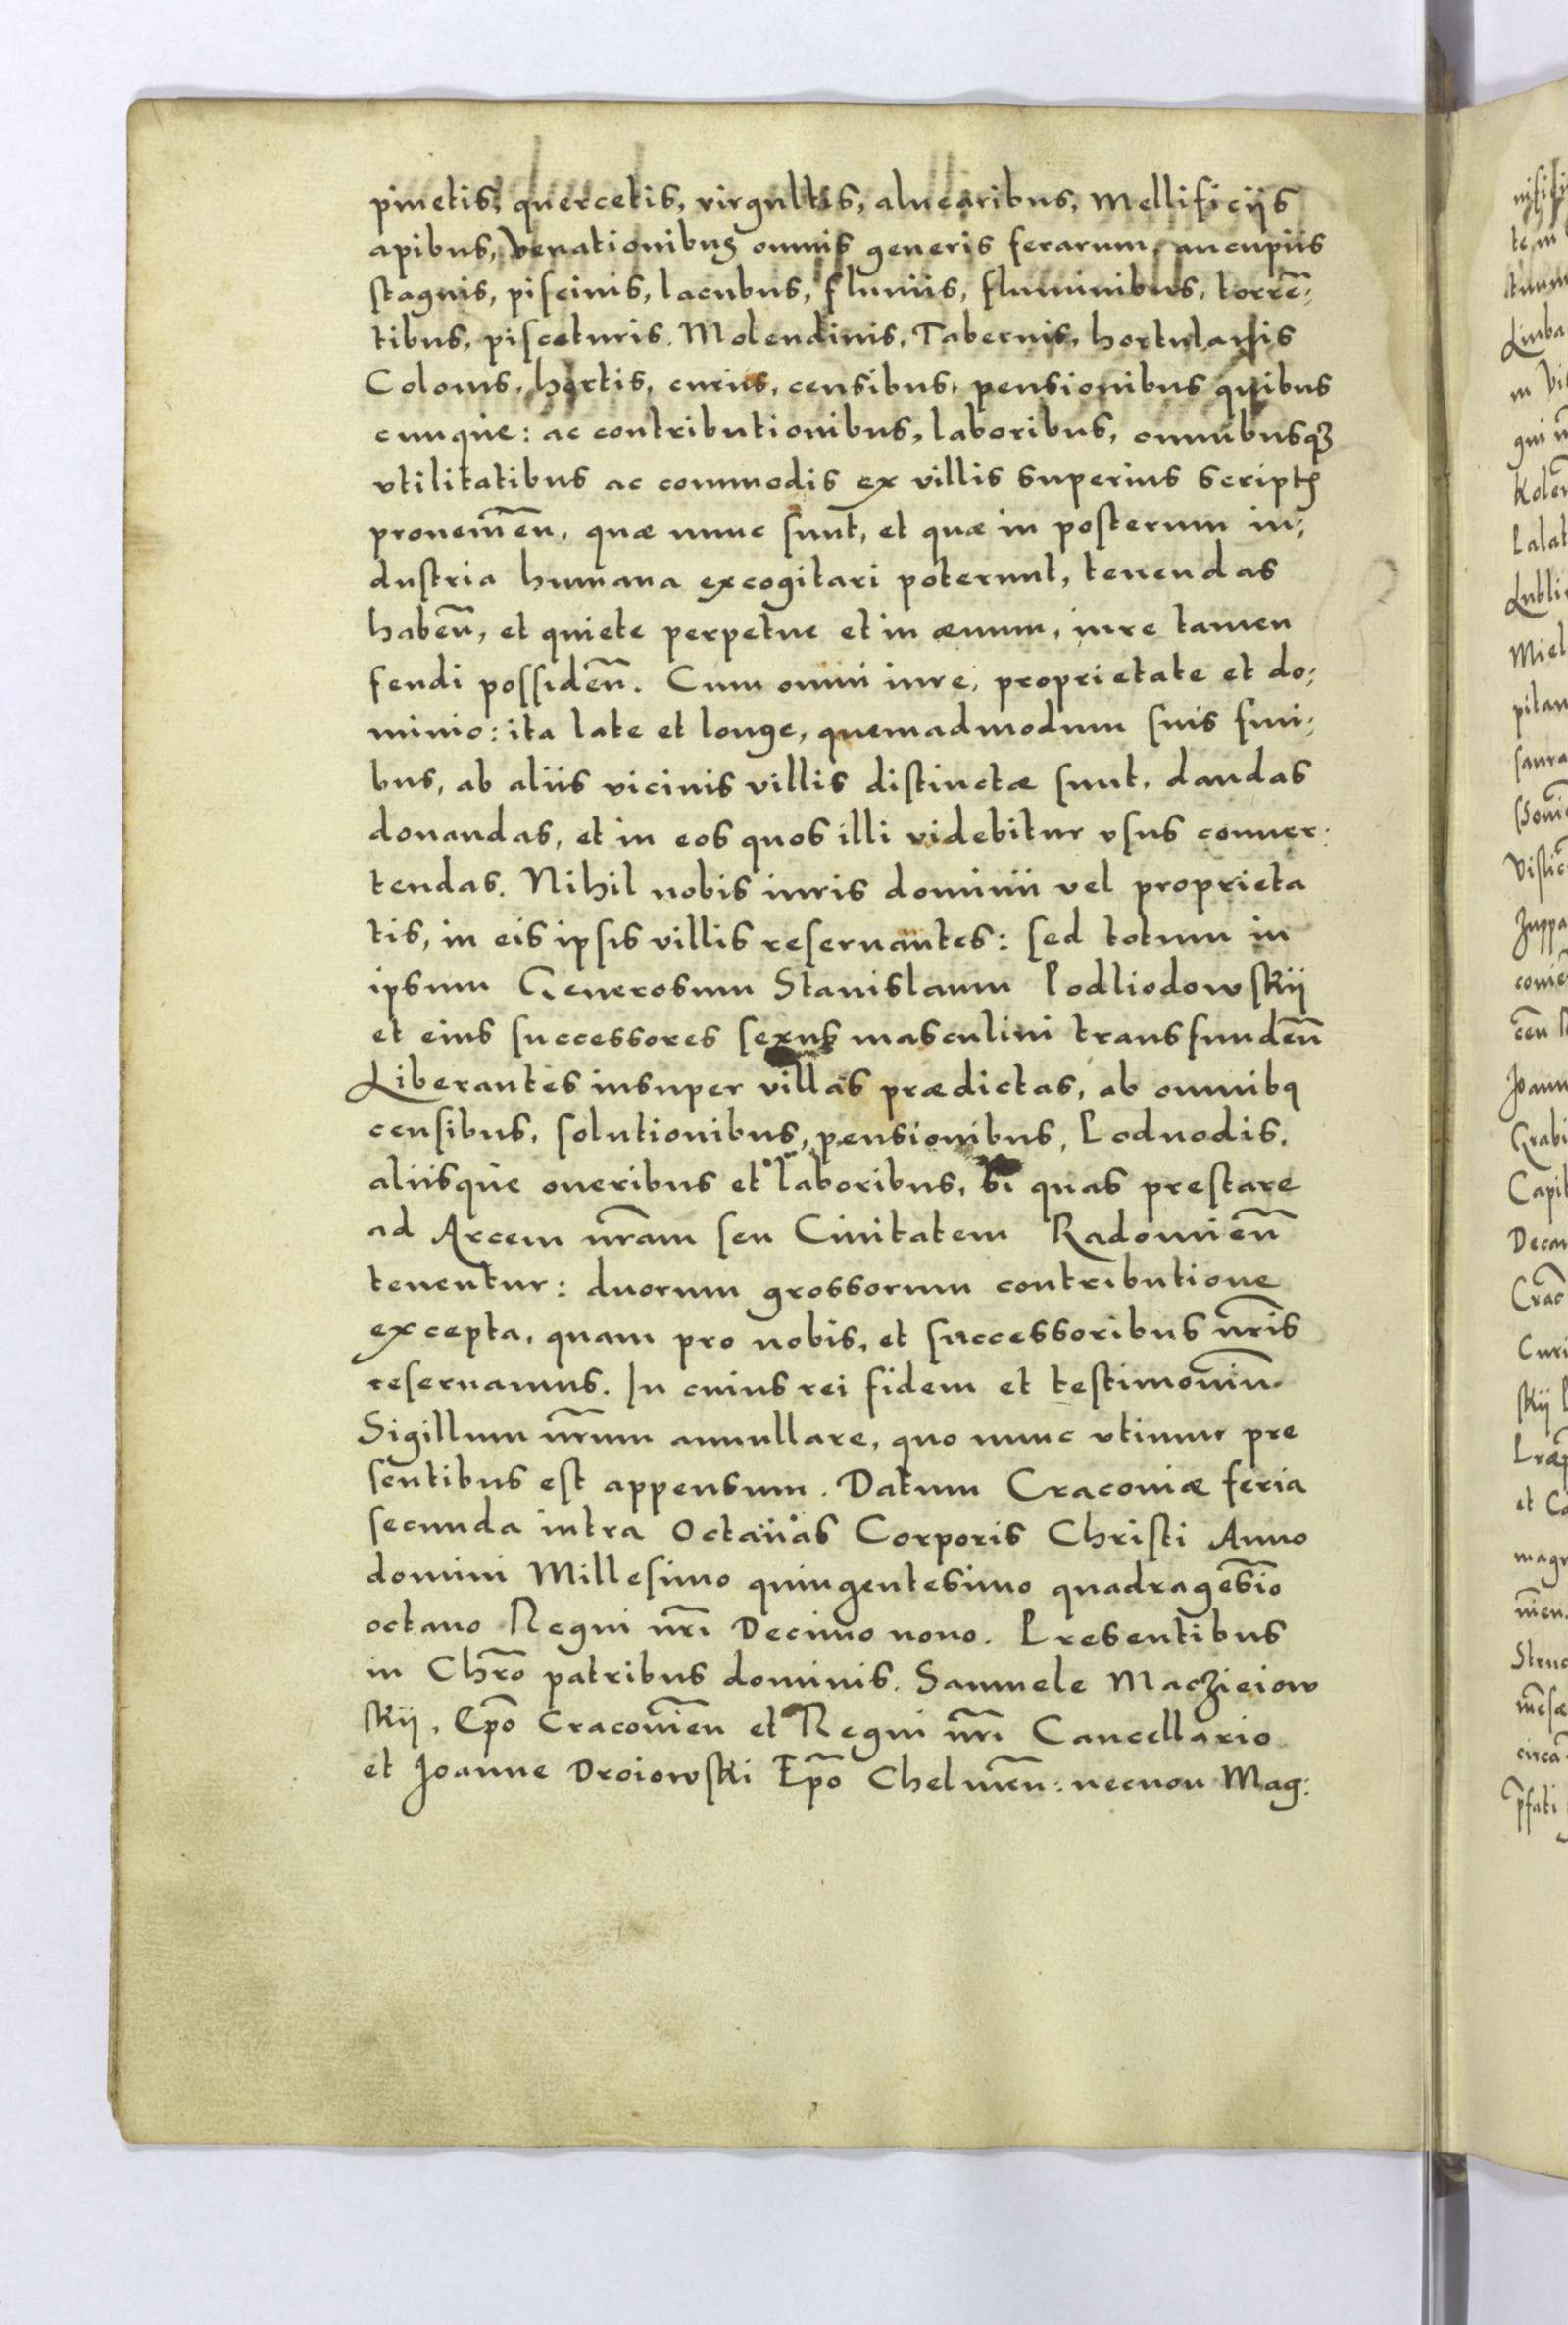 pinetis, quercetis, virgultis, aluearibus, Mellificijs
apibus, Venationibus omnis generis ferarum, aucupiis
stagnis, piscinis, lacubus, fluuiis, fluminibus, torrē-
tibus, piscaturis. Molendinis, Tabernis, hortulanis
Colonis, hortis, curiis, censibus, pensionibus quibus
cunque: ac contributionibus, laboribus, omnibusqꝫ
vtilitatibus ac commodis ex villis superius scriptꝭ
proueniēn, quæ nunc sunt, et quæ in posterum in-
dustria humana excogitari poterunt, tenendas
habēn, et quiete perpetue et in æuum, iure tamen
feudi possidēn. Cum omni iure, proprietate et do-
minio: ita late et longe, quemadmodum suis fini-
bus, ab aliis vicinis villis distinctæ sunt, dandas
donandas, et in eos quos illi videbitur vsus conuer-
tendas. Nihil nobis iuris dominii vel proprieta
tis, in eis ipsis villis reseruantes: sed totum in
ipsum Generosum Stanislaum Podliodowskij
et eius successores sexus masculini transfundēn
Liberantes insuper villas prædictas, ab omnibq
censibus, solutionibus, pensionibus, Poduodis,
aliisque oneribus et laboribus, si quas prestare
ad Arcem nr̄am seu Ciuitatem Radomiēn
tenentur: duorum grossorum contributione
excepta, quam pro nobis, et successoribus nr̄is
reseruamus. In cuius rei fidem et testimoniū.
Sigillum nr̄um annullare, quo nunc vtimur pre
sentibus est appensum. Datum Cracouiæ feria
secunda intra Octauas Corporis Christi Anno
domini Millesimo quingentesimo quadragesīo
octauo Regni nr̄i Decimo nono. Presentibus
in Chr̄o patribus dominis. Samuele Maczieiow
skij, Ep̄o Cracouiēn et Regni nr̄i Cancellario
et Joanne Droiowski Ep̄o Chelmēn: necnon Mag: